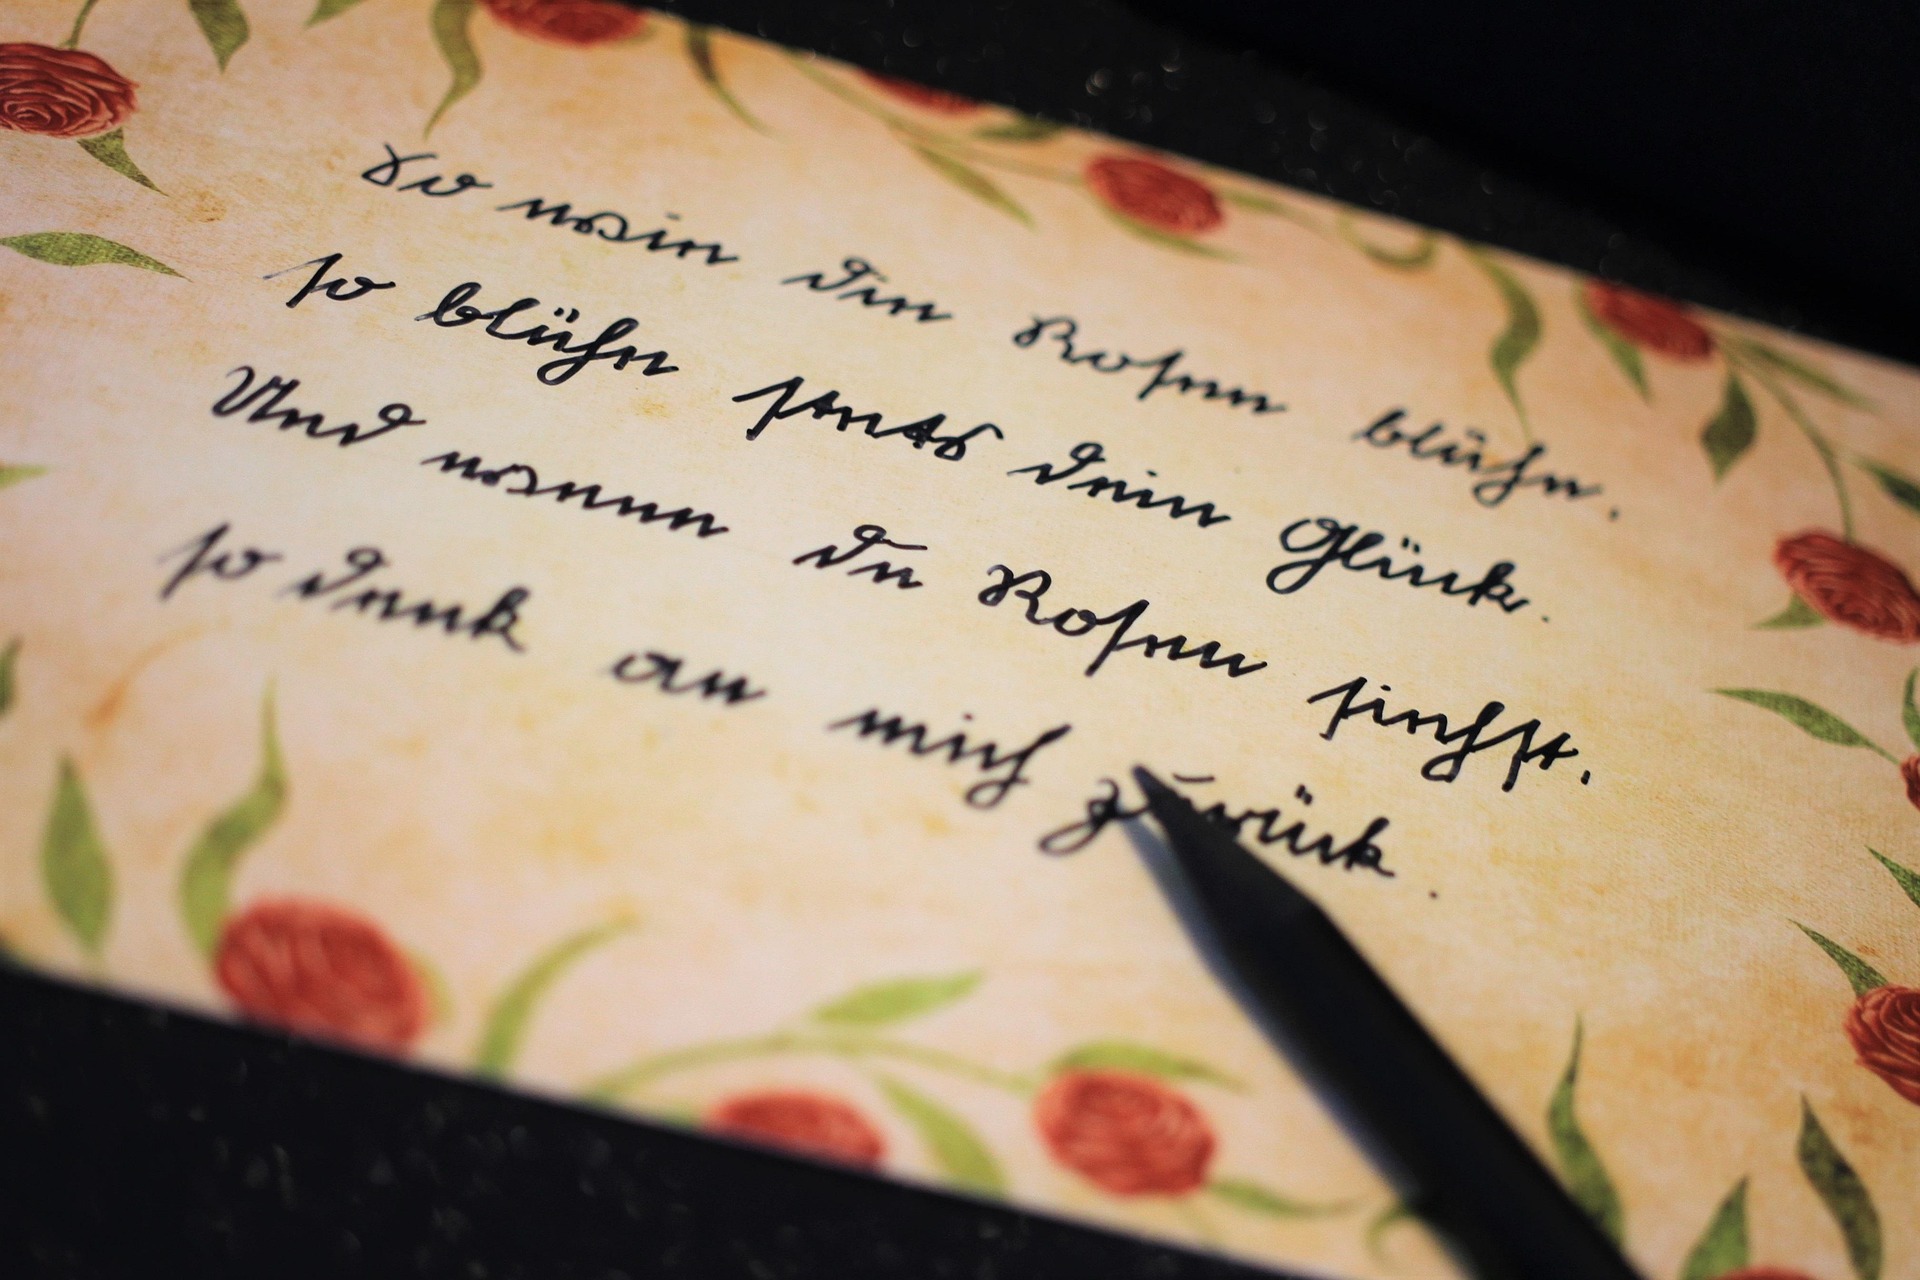 So wie die Rosen blühn,
so blühe stets dein Glück.
Und wenn du Rosen siehst,
so denk an mich zurück.